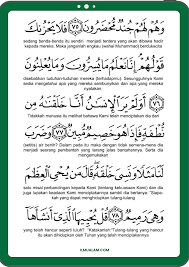 وَهُمْ لَهُمْ جُندٌ مُّحْضَرُونَ ﴿٧٥﴾ فَلَا يَحْزُنكَ
sedang benda-benda itu sendiri menjadi tentera yang akan dibawa hadir
kepada mereka. Maka janganlah engkau (wahai Muhammad) berdukacita
قَوْلُهُمْ إِنَّا نَعْلَمُ مَا يُسِرُّونَ وَمَا يُعْلِنُونَ
disebabkan tuduhan-tuduhan mereka (terhadapmu). Sesungguhnya Kami
sedia mengetahui apa yang mereka sembunyikan dan apa yang mereka
nyatakan.
﴿٧٦﴾ أَوَلَمْ يَرَ الْإِنسَانُ أَنَّا خَلَقْنَاهُ مِن
Tidakkah manusia itu melihat dan mengetahui, bahawa Kami telah menciptakan dia dari
نُّطْفَةٍ فَإِذَا هُوَ خَصِيمٌ مُّبِينٌ ﴿٧٧﴾ وَضَرَبَ
(setitis) air benih? Dalam pada itu maka dengan tidak semena-mena
menjadilah ia seorang pembantah yang terang jelas bantahannya. Serta dia
mengemukakan
لَنَا مَثَلًا وَنَسِيَ خَلْقَهُ قَالَ مَن يُحْيِي الْعِظَامَ
satu misal perbandingan kepada Kami (tentang kekuasaan itu), dan dia
pula lupakan keadaan Kami menciptakannya sambil dia bertanya: "Siapakah
yang dapat menghidupkan tulang-tulang
وَهِيَ رَمِيمٌ ﴿٧٨﴾ قُلْ يُحْيِيهَا الَّذِي أَنشَأَهَا
yang telah hancur seperti debu?" Katakanlah: "Tulang-tulang yang hancur
itu akan dihidupkan oleh Tuhan yang telah menciptakannya